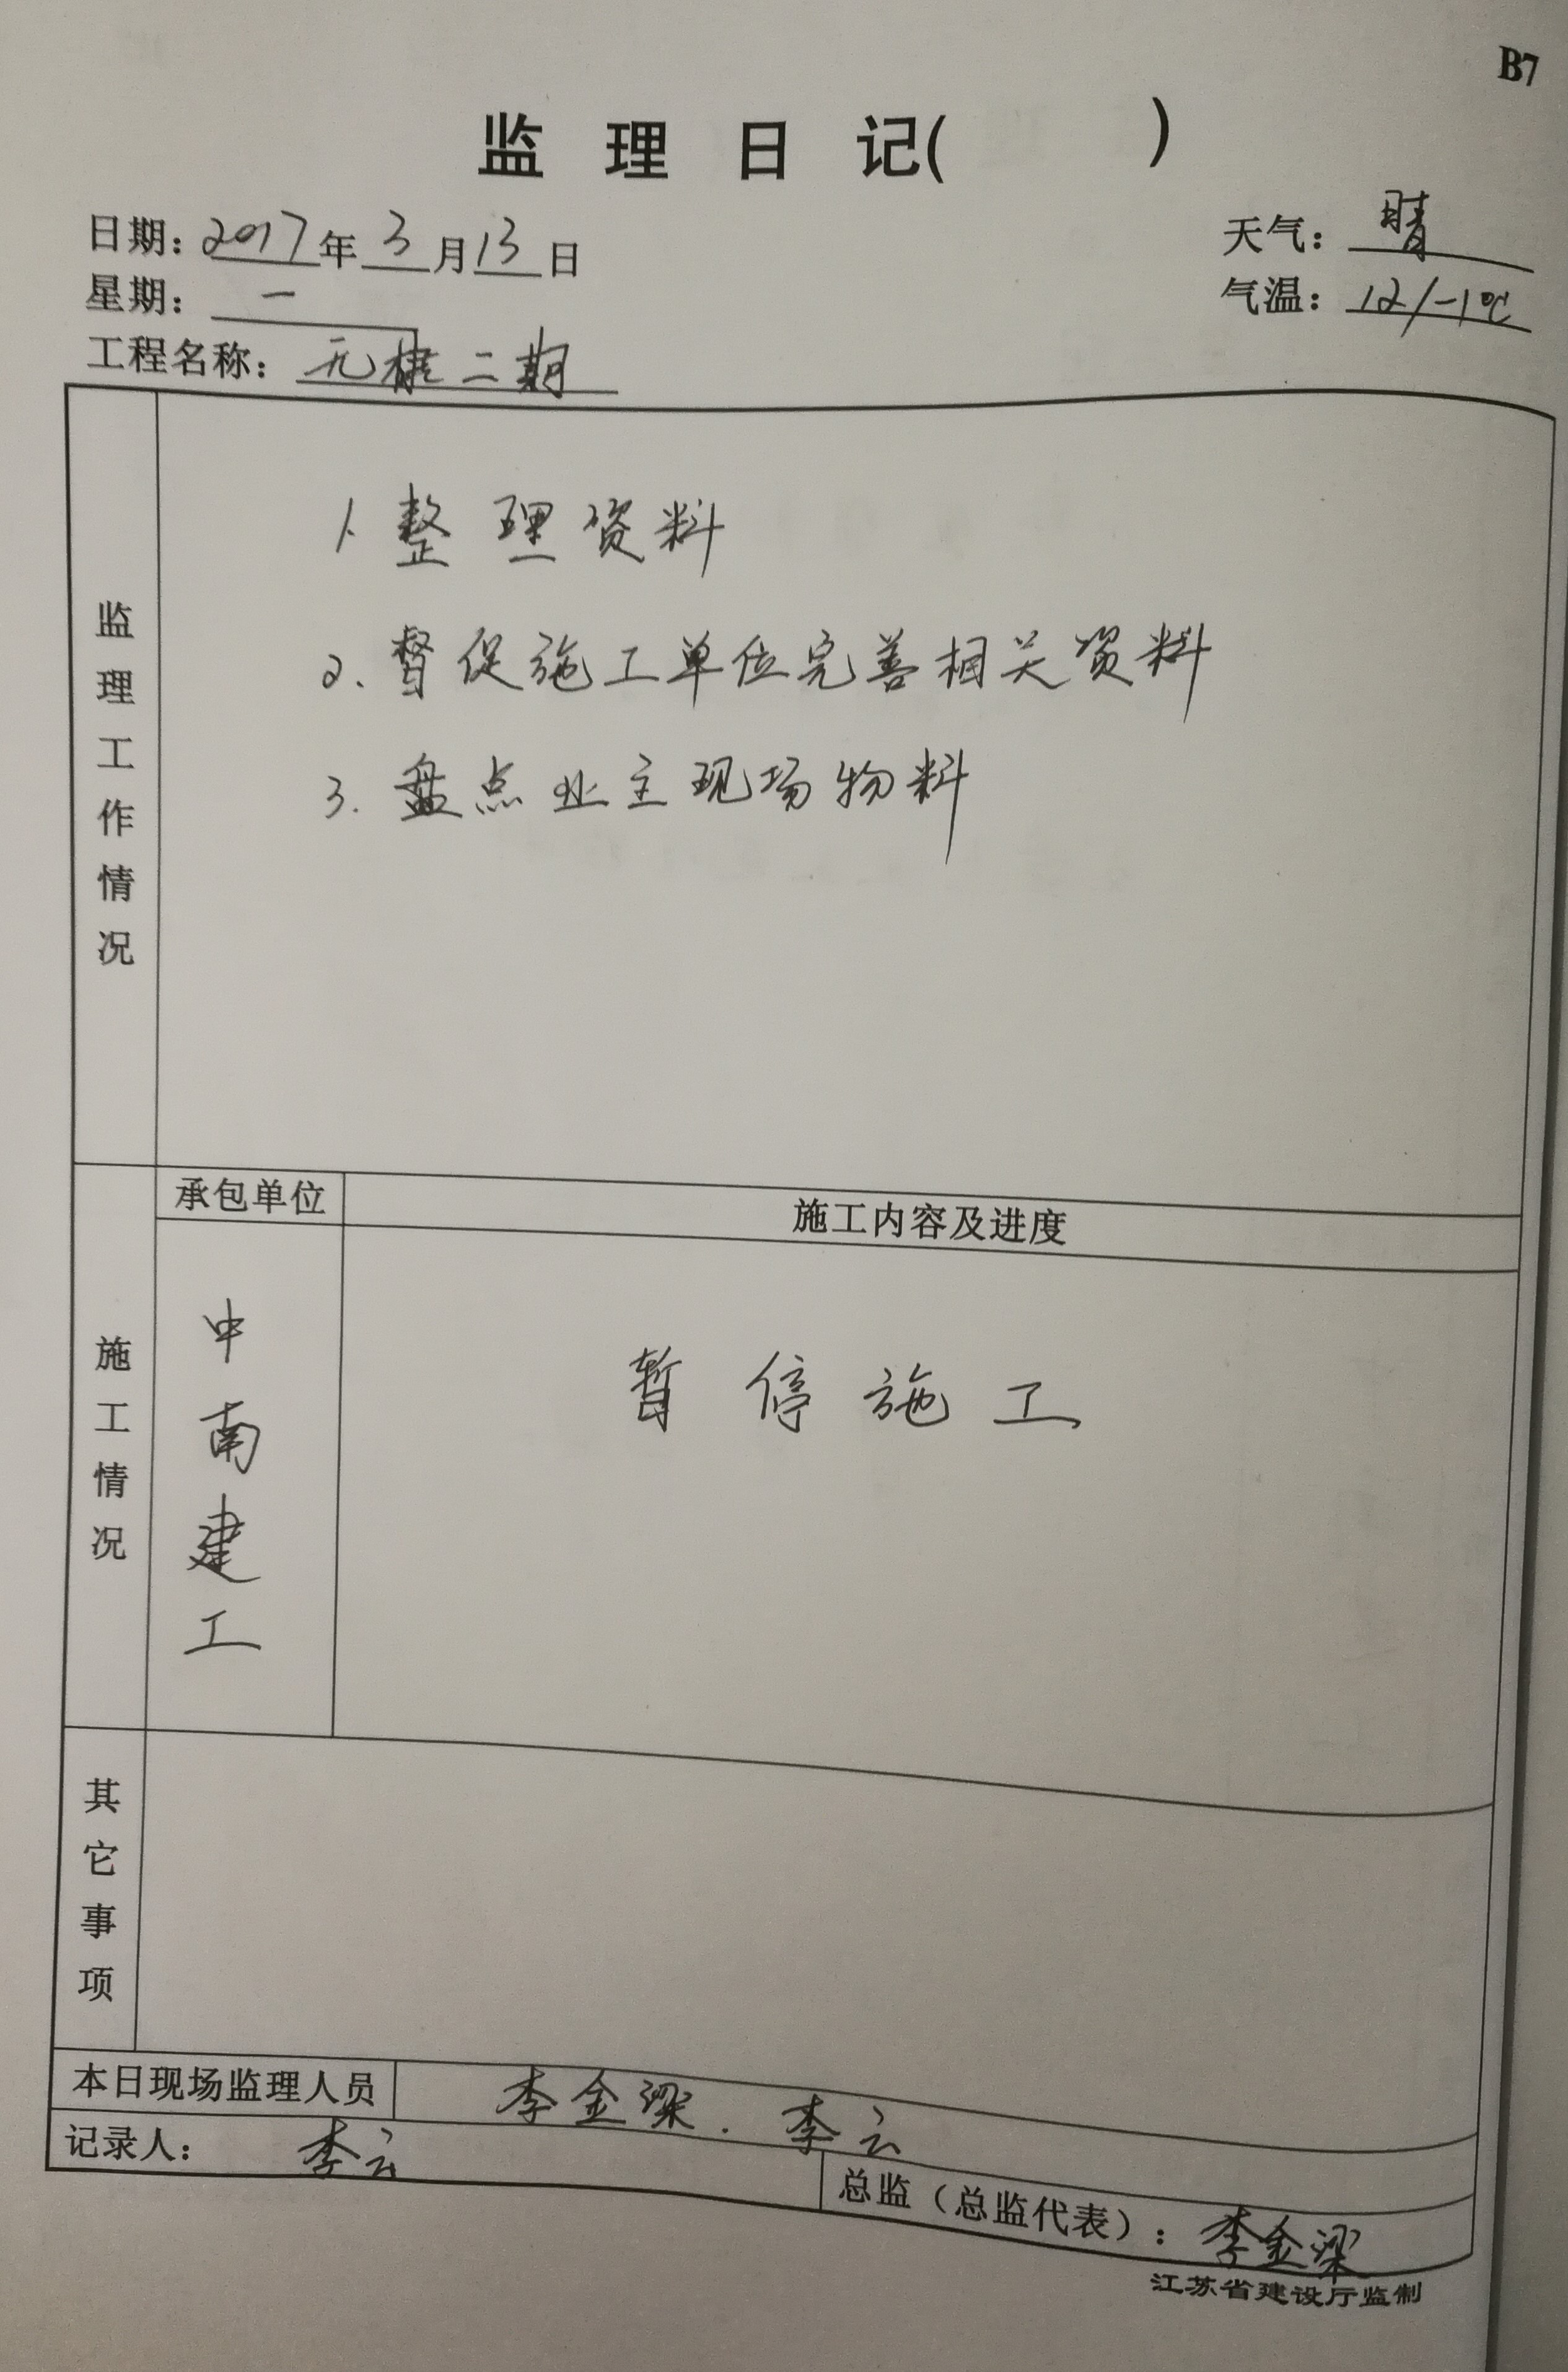 B7
监理日记(　　)
日期：2017年3月13日
天气：晴
星期：一
气温：12/-1℃
工程名称：无棣二期
监理工作情况
1.整理资料
2.督促施工单位完善相关资料
3.盘点业主现场物料
承包单位
施工内容及进度
施工情况
中南建工
暂停施工
其它事项
本日现场监理人员 李金梁．李云
记录人：李云
总监（总监代表）：李金梁
江苏省建设厅监制